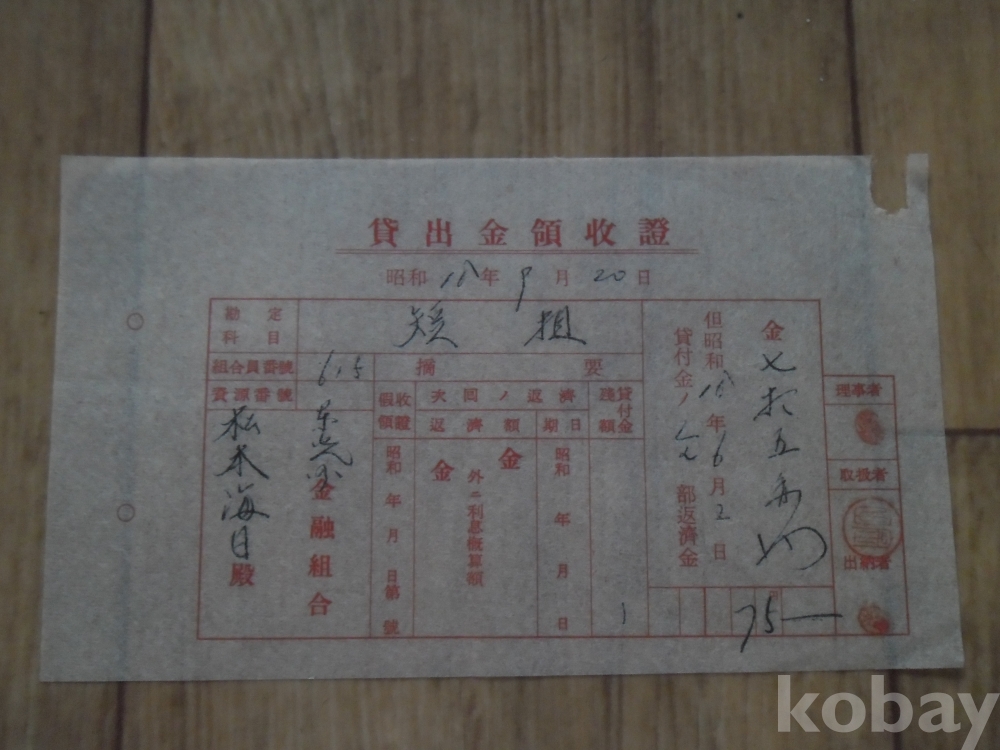 貸出金領收證
昭和18年9月20日
金七拾五圓
但昭和18年6月2日
貸付金ノ 部返濟金
75—
理事者
取扱者
出納者
勘定科目
組合員番號 615
資源番號
摘要
假收領證
次回ノ返濟
返濟額
期日
貸付金殘額
昭和 年 月 日第 號
金
外ニ利息概算額
金
昭和 年 月 日
金融組合
松本海日殿
kobay